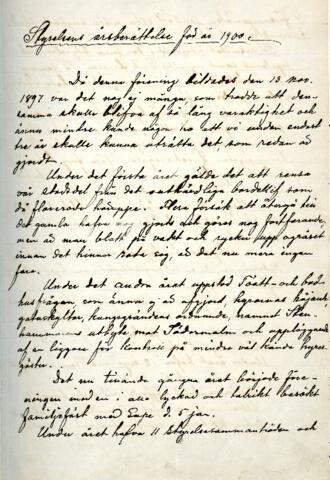 Styrelsens årsberättelse för år 1900.
Då denna förening bildades den 13 nov.
1897 var det nog ej många som trodde att den-
samma skulle blifva af så lång varaktighet och
ännu mindre kunde någon tro att vi under endast
tre år skulle kunna uträtta det, som redan är
gjordt.
Under det första året gällde det att rensa
vår stadsdel från det osedliga bordellif som
då florerade häruppe. Flera försök att återgå till
det gamla hafva nog gjorts och göras nog fortfarande,
men är man blott på vakt och rycker upp ogräset
innan det hinner rota sig, är det nu mera ingen
fara.
Under det andra året uppstod Tvätt- och bad-
husfrågan, som ännu ej är afgjord, hyrornas höjande,
gataskyltar, kungsgrändens ordnande, hamnut
utbyte mot Södermalm och uppläggande
af en liggare för kontroll på mindre väl kända hyres-
gäster.
Det nu tilländagångna året började före-
ningen med en i allo lyckad och talrikt besökt
familjefäst med Supé d. 5 jan.
Under året hafva 11 styrelsesammanträden och